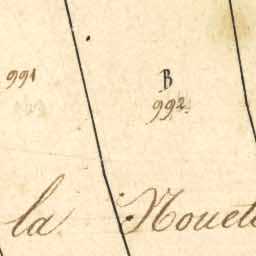 991
B
992
la Nouet